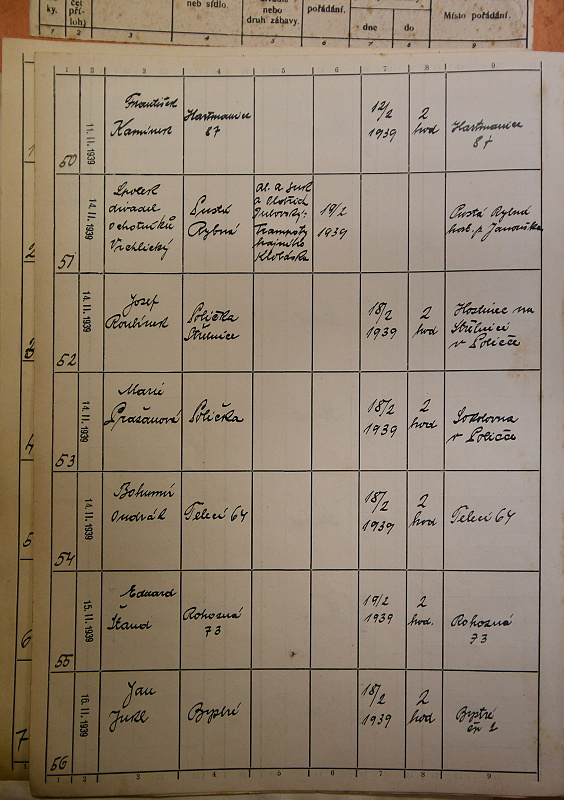 ky.
čet
pří-
loh)
neb sídlo.
nebo
druh zábavy.
pořádání.
dne
do
Místo pořádání.
1 2 3 4 5 6 7 8 9
50
11. II. 1939
František
Kamínek
Hartmanice
87
12/2
1939
2
hod
Hartmanice
87
51
14. II. 1939
Spolek
divadel
ochotníků
Vrchlický
Pustá
Rybná
19/2
1939
Pustá Rybná
host. p. Janouška
52
14. II. 1939
Josef
Roubínek
Polička
Střelnice
18/2
1939
2
hod
Hostinec na
Střelnici
v Poličce
53
14. II. 1939
Marie
Pražanová
Polička
18/2
1939
2
hod
Sokolovna
v Poličce
54
14. II. 1939
Bohumil
Ondrák
Telecí 64
18/2
1939
2
hod
Telecí 64
55
15. II. 1939
Eduard
Štand
Rohozná
73
19/2
1939
2
hod.
Rohozná
73
56
16. II. 1939
Jan
Jukl
Bystré
18/2
1939
2
hod
Bystré
čp 2
1 2 3 4 5 6 7 8 9
1
2
3
4
5
6
7